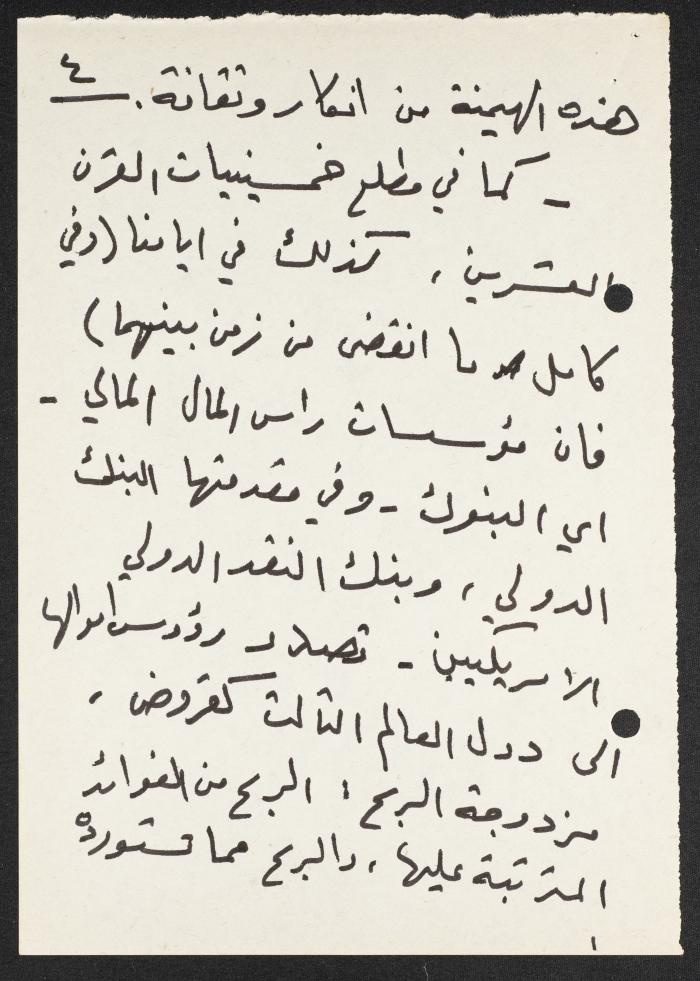 ٤
هذه الهيمنة من افكار وثقافة.
- كما في مطلع خمسينيات القرن
العشرين، كذلك في ايامنا (وفي
كامل ما انقضى من زمن بينهما)
فان مؤسسات راس المال المالي -
اي البنوك - وفي مقدمتها البنك
الدولي، وبنك النقد الدولي
الامريكيين - تصدر رؤوس اموالها
الى دول العالم الثالث كقروض،
مزدوجة الربح: الربح من الفوائد
المترتبة عليها، والربح مما تستورده